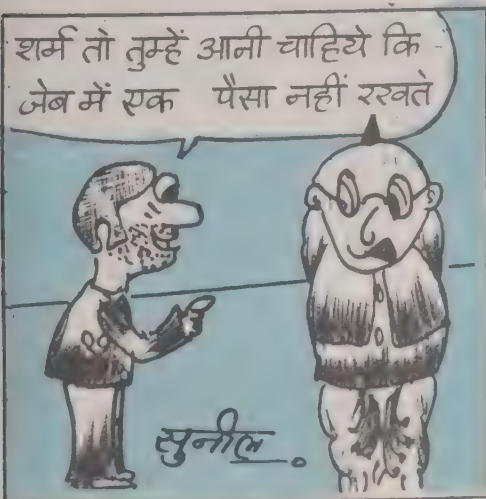 शर्म तो तुम्हें आनी चाहिये कि
जेब में एक पैसा नहीं रखते
सुनील